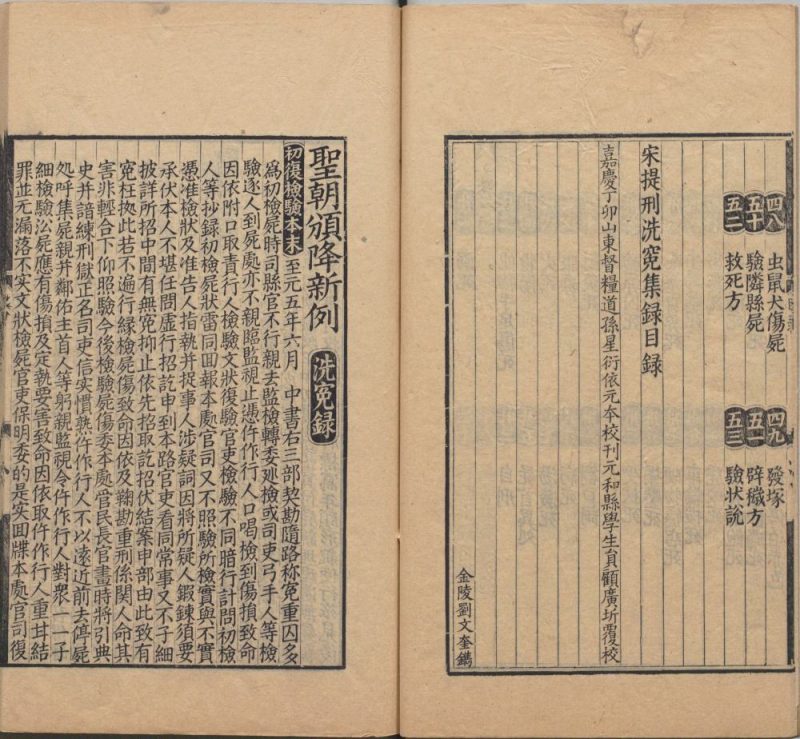 四八 虫鼠犬傷屍 四九 發塚
五十 驗隣縣屍 五一 辟穢方
五二 救死方 五三 驗状說
宋提刑洗冤集録目録
嘉慶丁卯山東督糧道孫星衍依元本校刊元和縣學生員顧廣圻覆校
金陵劉文奎鐫
聖朝頒降新例 洗冤録
初復檢驗本末 至元五年六月 中書右三部契勘隨路称冤重囚多
爲初檢屍時司縣官不行親去監檢轉委廵檢或司吏弓手人等檢
驗逐人到屍處亦不親臨監視止憑仵作行人口喝檢到傷損致命
因依附口取責行人檢驗文狀復驗官吏檢驗不同暗行計問初檢
人等抄錄初檢屍狀雷同囬報本處官司又不照驗所檢實與不實
憑准檢狀及准告人指執并捉事人涉疑詞因將所疑人鍛鍊須要
承伏本人不堪任問虛行招訖申到本路官吏看同常事又不子細
披詳所招中間有無冤抑止依先招取訖招伏結案申部由此致有
冤枉拠此若不遍行縁檢屍傷致命因依及鞠勘重刑係関人命其
害非輕合下仰照驗今後檢驗屍傷委本處管民長官畫時將引典
史并諳練刑獄正名司吏信实慣熟仵作行人不以遠近前去停屍
処呼集屍親并鄰佑主首人等躬親監視令仵作行人對衆一一子
細檢驗沿屍應有傷損及定執要害致命因依取仵作行人重甘結
罪並无漏落不实文狀檢屍官吏保明委的是实囬牒本處官司復